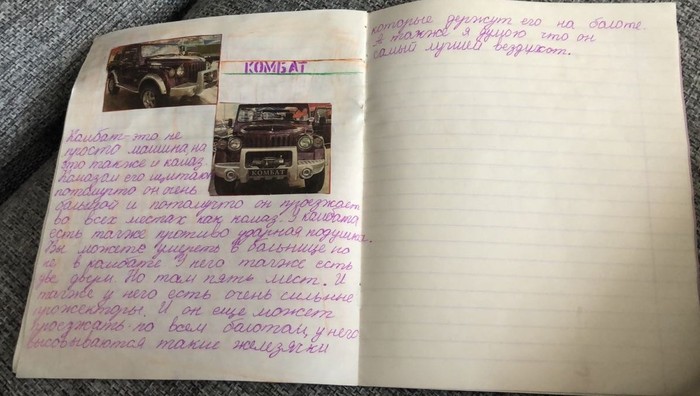 КОМБАТ
КОМБАТ
Комбат-это не
просто машина на
это также и камаз.
Камазам его щитают
потамуто он очень
бальшой и потамучто он праезжает
во всех местах как камаз. У комбата
есть тагже противо ударная подушка.
Вы можете умереть в бальнице но
не в комбате. У него тагже есть
две двери. Но там пять мест. И
тагже у него есть очень сильные
прожекторы. И он еще может
проезжать по всем болотам, у него
высовываются такие железячки
которые держут его на болоте.
А также я думою что он
самый лучшей вездихот.